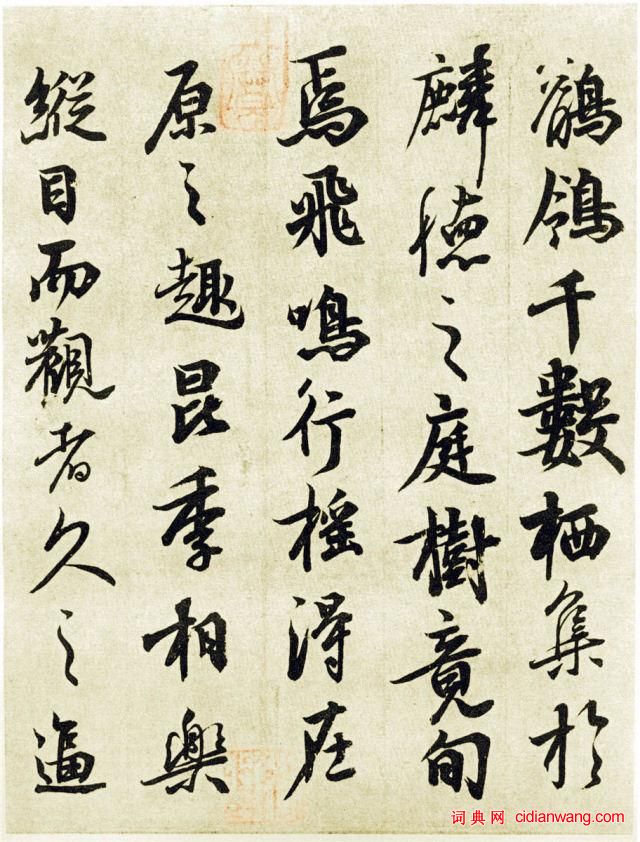 鶺鴒千數栖集於
麟德之庭樹竟旬
焉飛鳴行摇得在
原之趣昆季相樂
縱目而觀者久之逼
词典网 cidianwang.com